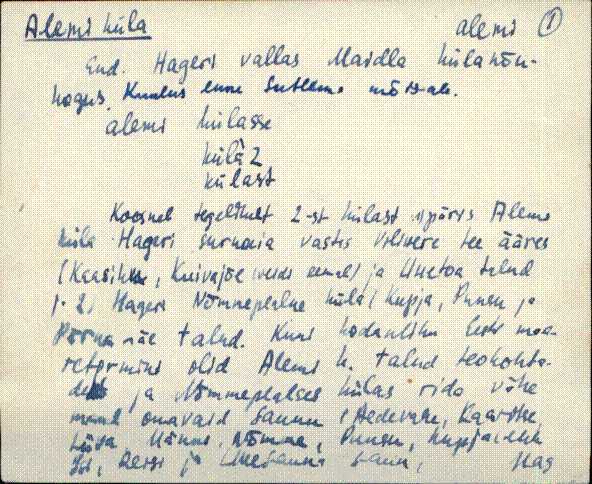 Alemi küla alemi 1
End. Hageri vallas Maidla külanõu-
kogus. Kuulus enne Sutlema mõisale.
alemi külasse
külà 2
külast
Koosnes tegelikult 2-st külast: päris Alemi
küla Hageri surnuaia vastas Vilivere tee ääres
(Kaasiku, Kuivajõe eemal) ja Uuetoa talud
ja 2. Hageri Nõmmepealne küla (Kupja, Punsu ja
Pärnamäe talud. Kuni kodanliku Eesti maa-
reformini olid Alemi k. talud teokohta-
deks ja Nõmmepealses külas rida vähe
maad omavaid saunu (Aedevahe, Kaarstu,
Nõmme, Punsu, Kupjavahe
ja Uuesauna saun,